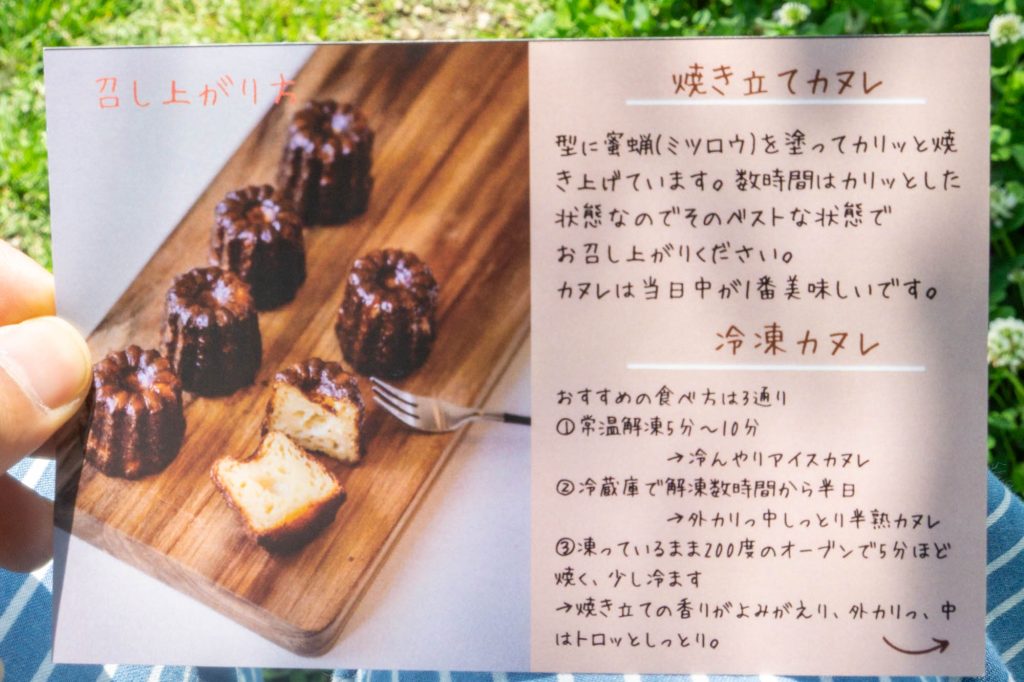 召し上がり方
焼き立てカヌレ
型に蜜蝋(ミツロウ)を塗ってカリッと焼
き上げています。数時間はカリッとした
状態なのでそのベストな状態で
お召し上がりください。
カヌレは当日中が1番美味しいです。
冷凍カヌレ
おすすめの食べ方は3通り
①常温解凍5分〜10分
→冷んやりアイスカヌレ
②冷蔵庫で解凍数時間から半日
→外カリっ中しっとり半熟カヌレ
③凍っているまま200度のオーブンで5分ほど
焼く、少し冷ます
→焼き立ての香りがよみがえり、外カリっ、中
はトロッとしっとり。